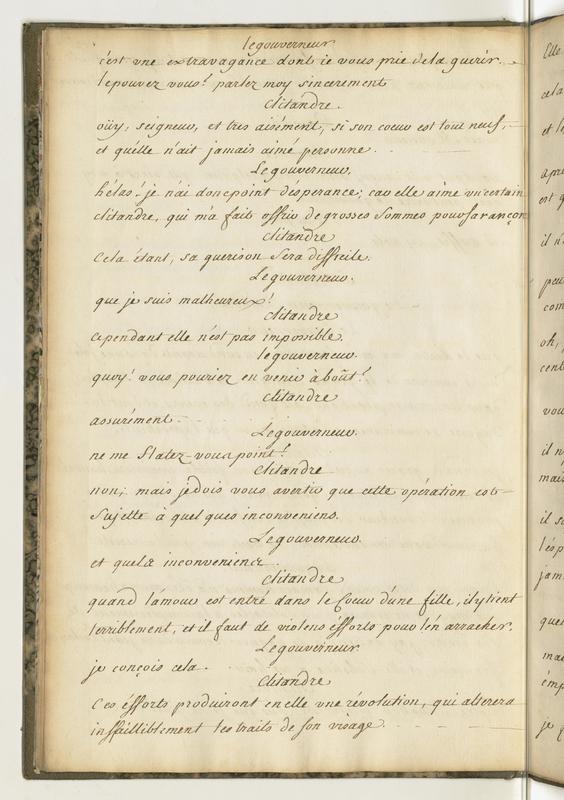 legouverneur
c'est vne extravagance dont ie vous prie dela guerir.
lepouvez vous? parlez moy sincerement
clitandre.
oüy, seigneur, et tres aisément, si son coeur est tout neuf,
et qu'elle n'ait jamais aimé personne.
Le gouverneur.
hélas! je n'ai doncpoint d'esperance; car elle aime vn certain
clitandre, qui m'a fait offrir de grosses sommes pour sa rançon
clitandre
Cela étant, sa querison sera difficile.
Le gouverneur.
que je suis malheureux!
clitandre
cependant elle n'est pas impossible.
le gouverneur.
quoy! vous pouriez en venir à boût?
clitandre
assurément.
Le gouverneur.
ne me flatez-vous point?
clitandre
non; mais je dois vous avertir que cette opération est
sujette à quelques inconveniens.
Le gouverneur.
et quels inconveniens.
clitandre
quand l'amour est entré dans le Coeur d'une fille, il y tient
terriblement, et il faut de violens éfforts pour l'en arracher.
Le gouverneur
je conçois cela.
clitandre
Ces éfforts produiront en elle vne révolution, qui alterera
infailliblement les traits de son visage.
Elle
cela
et le
apre
est q
il n'
peu
com
oh,
cent
vou
il n
mais
il se
l'esp
jam
que
ma
emp
je